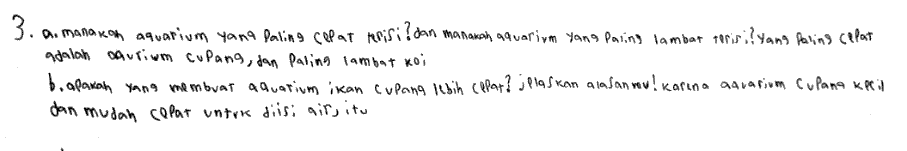 3. a. manakah aquarium yang Paling cepat terisi? dan manakah aquarium yang Paling lambat terisi? yang Paling cepat
adalah aqurium cupang, dan Paling lambat koi
b. apakah yang membuat aquarium ikan cupang lebih cepat? jelaskan alasanmu! karena aquarium cupang kecil
dan mudah cepat untuk diisi air, itu